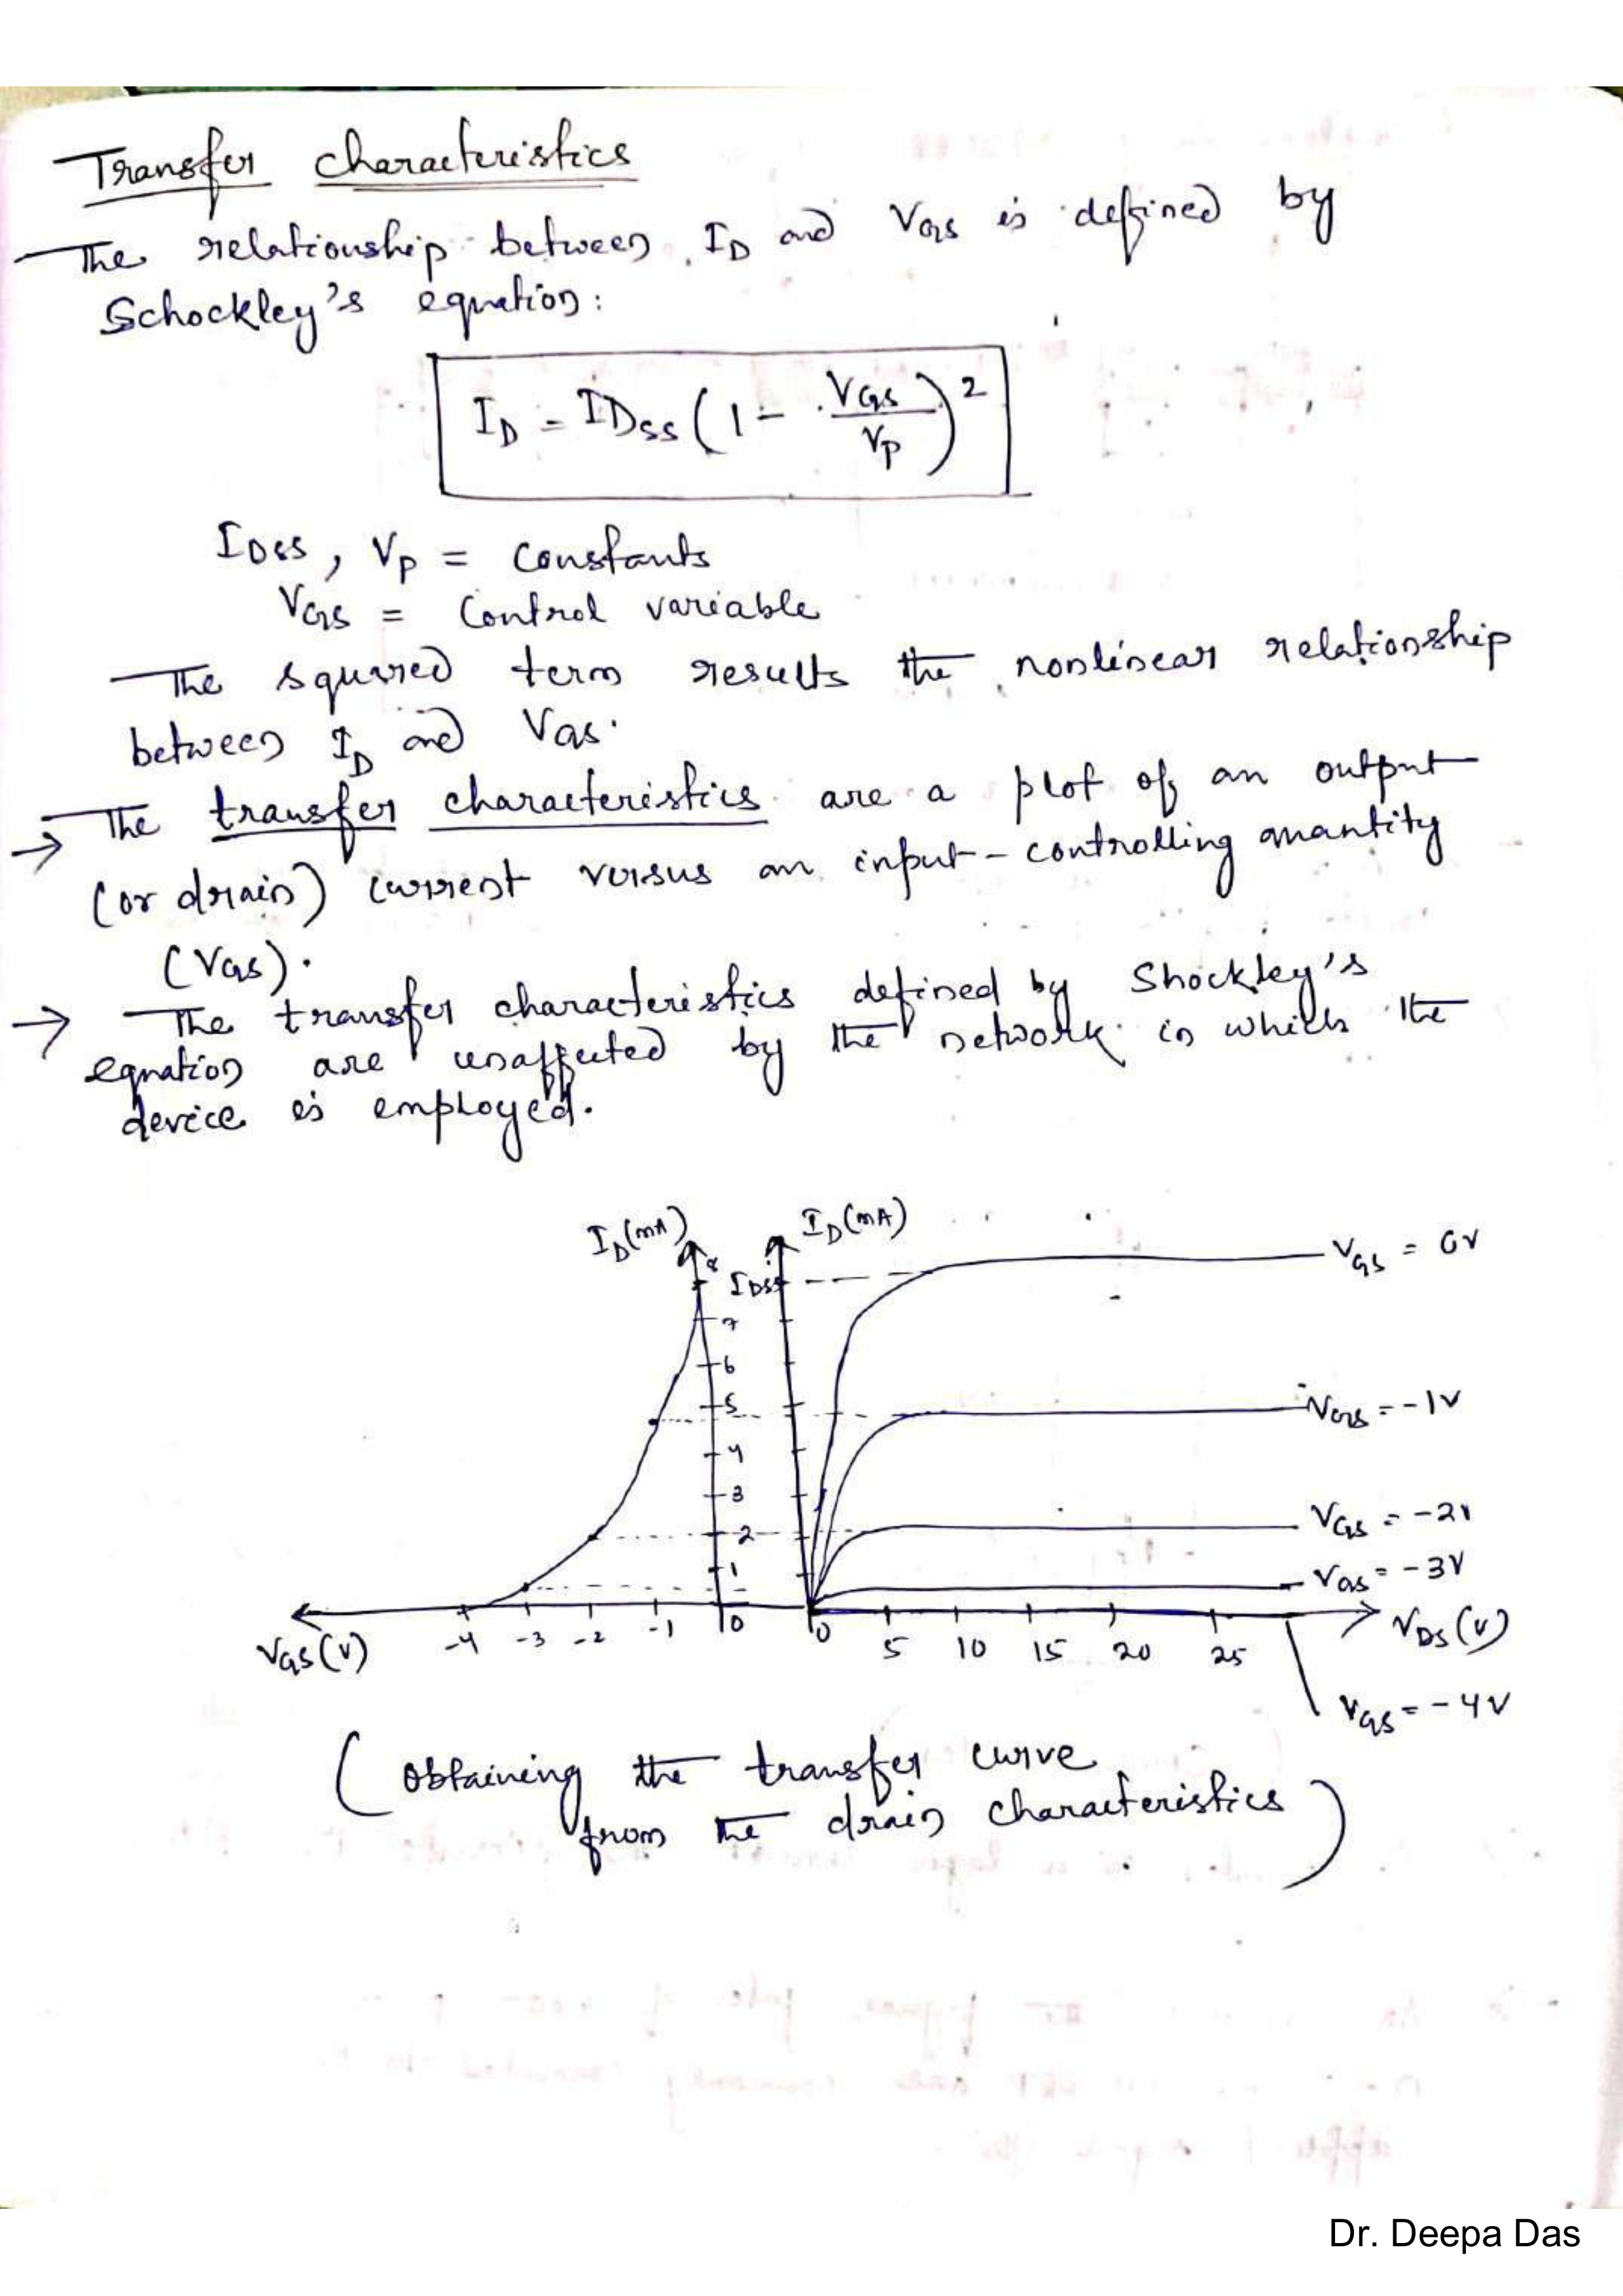 Transfer characteristics
The relationship between I_D and V_GS is defined by
Schockley's equation:
I_D = I_DSS (1 - V_GS/V_P)^2
I_DSS, V_P = constants
V_GS = Control variable
The squared term results the nonlinear relationship
between I_D and V_GS.
→ The transfer characteristics are a plot of an output
(or drain) current versus an input-controlling quantity
(V_GS).
→ The transfer characteristics defined by Shockley's
equation are unaffected by the network in which the
device is employed.
I_D(mA) I_D(mA)
8 I_DSS V_GS = 0V
7
6
5 V_GS = -1V
4
3
2 V_GS = -2V
1 V_GS = -3V
V_GS(V) -4 -3 -2 -1 0 0 5 10 15 20 25 V_DS(V)
V_GS = -4V
(Obtaining the transfer curve
from the drain characteristics)
Dr. Deepa Das